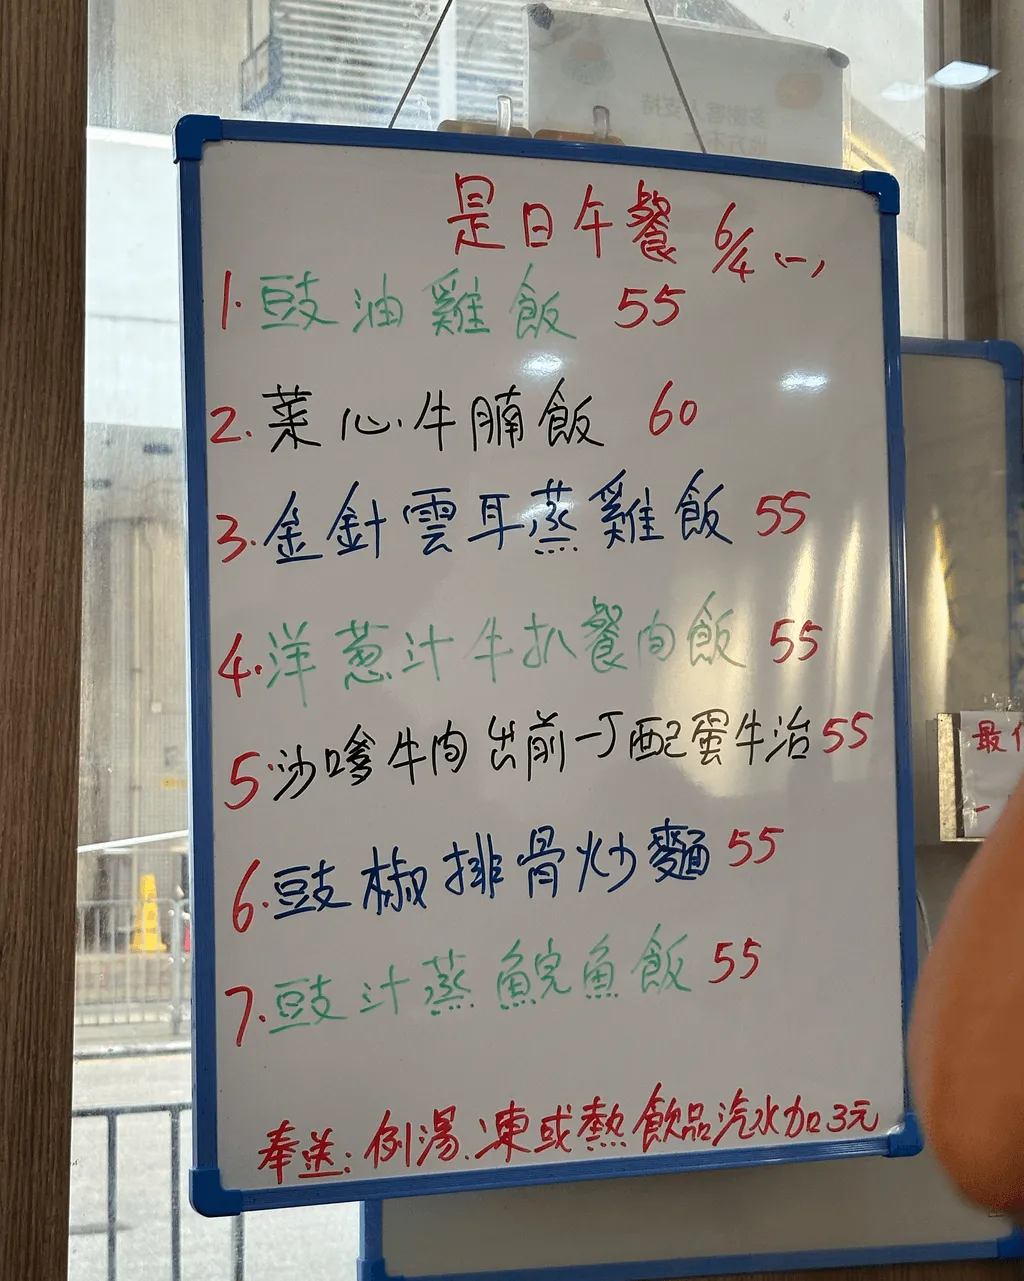 是日午餐 6/4 (一)
1. 豉油雞飯 55
2. 菜心牛腩飯 60
3. 金針雲耳蒸雞飯 55
4. 洋葱汁牛扒餐肉飯 55
5. 沙嗲牛肉出前一丁配蛋牛治 55
6. 豉椒排骨炒麵 55
7. 豉汁蒸鯇魚飯 55
奉送: 例湯. 凍或熱飲品汽水加3元
最
一